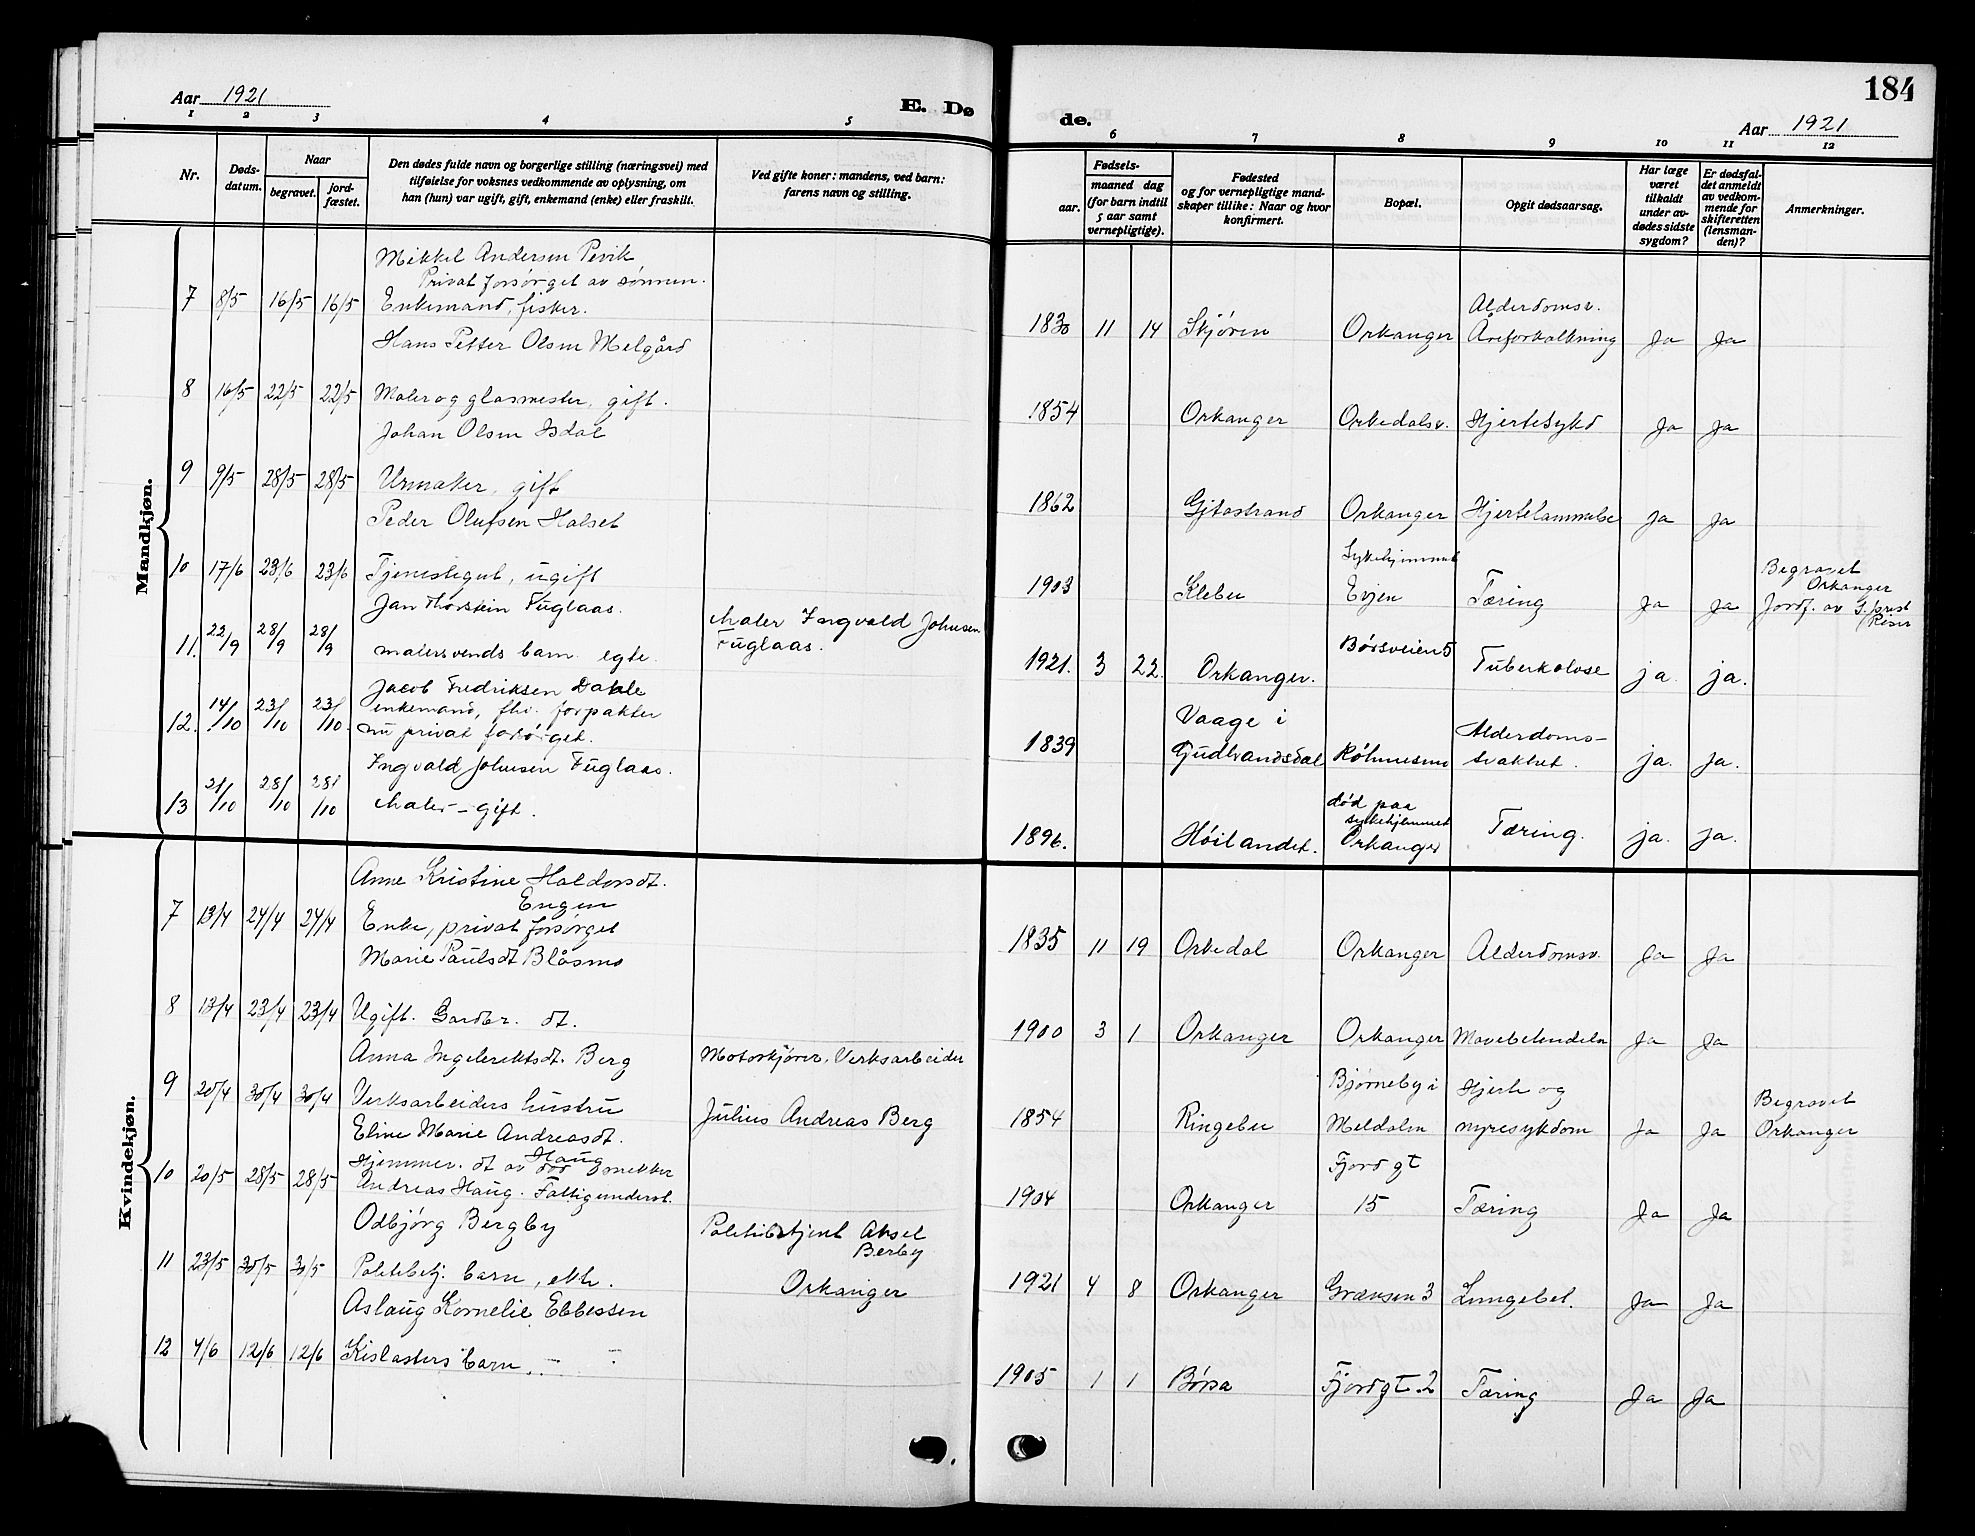 184
Aar 1921
E. Dø
de.
Aar 1921
1 2 3 4 5 6 7 8 9 10 11 12
Nr.
Døds-
datum.
Naar
begravet.
jord-
fæstet.
Den dødes fulde navn og borgerlige stilling (næringsvei) med
tilføielse for voksnes vedkommende av oplysning, om
han (hun) var ugift, gift, enkemand (enke) eller fraskilt.
Ved gifte koner: mandens, ved barn:
farens navn og stilling.
Fødsels-
aar.
maaned dag
(for barn indtil
5 aar samt
vernepligtige).
Fødested
og for vernepligtige mand-
skaper tillike: Naar og hvor
konfirmert.
Bopæl.
Opgit dødsaarsag.
Har læge
været
tilkaldt
under av-
dødes sidste
sygdom?
Er dødsfal-
det anmeldt
av vedkom-
mende for
skifteretten
(lensman-
den)?
Anmerkninger.
Mandkjøn.
Mikkel Andersen Pevik
Privat forsørget av sønnen.
7 8/5 16/5 16/5 Enkemand, fisker.
1830 11 14 Skjøren Orkanger
Alderdomsv.
Åreforkalkning Ja Ja
Hans Petter Olsen Melgård
8 16/5 22/5 22/5 Maler og glasmester, gift.
1854 Orkanger Orkedalsv. Hjertesykd Ja Ja
Johan Olsen Isdal
9 9/5 28/5 28/5 Urmaker, gift
1862 Orkanger Hjertelammelse Ja Ja
Peder Olufsen Halset
10 17/6 23/6 23/6 Tjenestegut, ugift
1903 Klebu
Sykehjemmet
Evjen Tæring Ja Ja
Begravet
Orkanger
Jordf. av
Jan Thorstein Fuglaas.
11. 22/9 28/9 28/9 malersvends barn egte.
Maler Ingvald Johnsen
Fuglaas.
1921. 3 22. Orkanger. Børsveien 5 Tuberkolose ja. ja.
Jacob Fredriksen Dahle
12. 14/10 23/10 23/10 enkemand, fhv. forpakter
nu privat forsørget.
1839
Vaage i
Gudbrandsdal
Alderdoms-
svakhet. ja. ja.
Ingvald Johnsen Fuglaas.
13 21/10 28/10 28/10 Maler – gift.
1896. Høilandet.
død paa
sykehjemmet
Orkanger Tæring. ja. ja.
Kvindekjøn.
Anne Kristine Haldorsdt.
Engen
7 13/4 24/4 24/4 Enke, privat forsørget
1835 11 19 Orkedal Orkanger Alderdomsv. Ja Ja
Marie Paulsdt Blåsmo
8 13/4 23/4 23/4 Ugift. Gardbr. dt.
1900 3 1 Orkanger Orkanger Ja Ja
Anna Ingebrektsdt. Berg
9 20/4 30/4 30/4 Verksarbeiders hustru
Motorkjører, Verksarbeider
Julius Andreas Berg
1854 Ringebu
Bjørneby i
Meldalen
Hjerte og
nyresykdom Ja Ja
Begravet
Orkanger
Eline Marie Andreasdt.
Haug
10 20/5 28/5 28/5 Hjemmev. dt av død snekker
Andreas Haug. Fattigunderst.
1904 Orkanger
Fjordgt
15 Tæring Ja Ja
Odbjørg Bergby
11 23/5 30/5 30/5 Politibetj. barn, ekte.
Politibetjent Aksel
Berby
Orkanger
1921 4 8 Orkanger Grænsen 3 Lungebet. Ja Ja
Aslaug Kornelie Ebbessen
12 4/6 12/6 12/6 Kislasters barn, – –
1905 1 1 Børsa Fjordgt. 2 Tæring Ja Ja